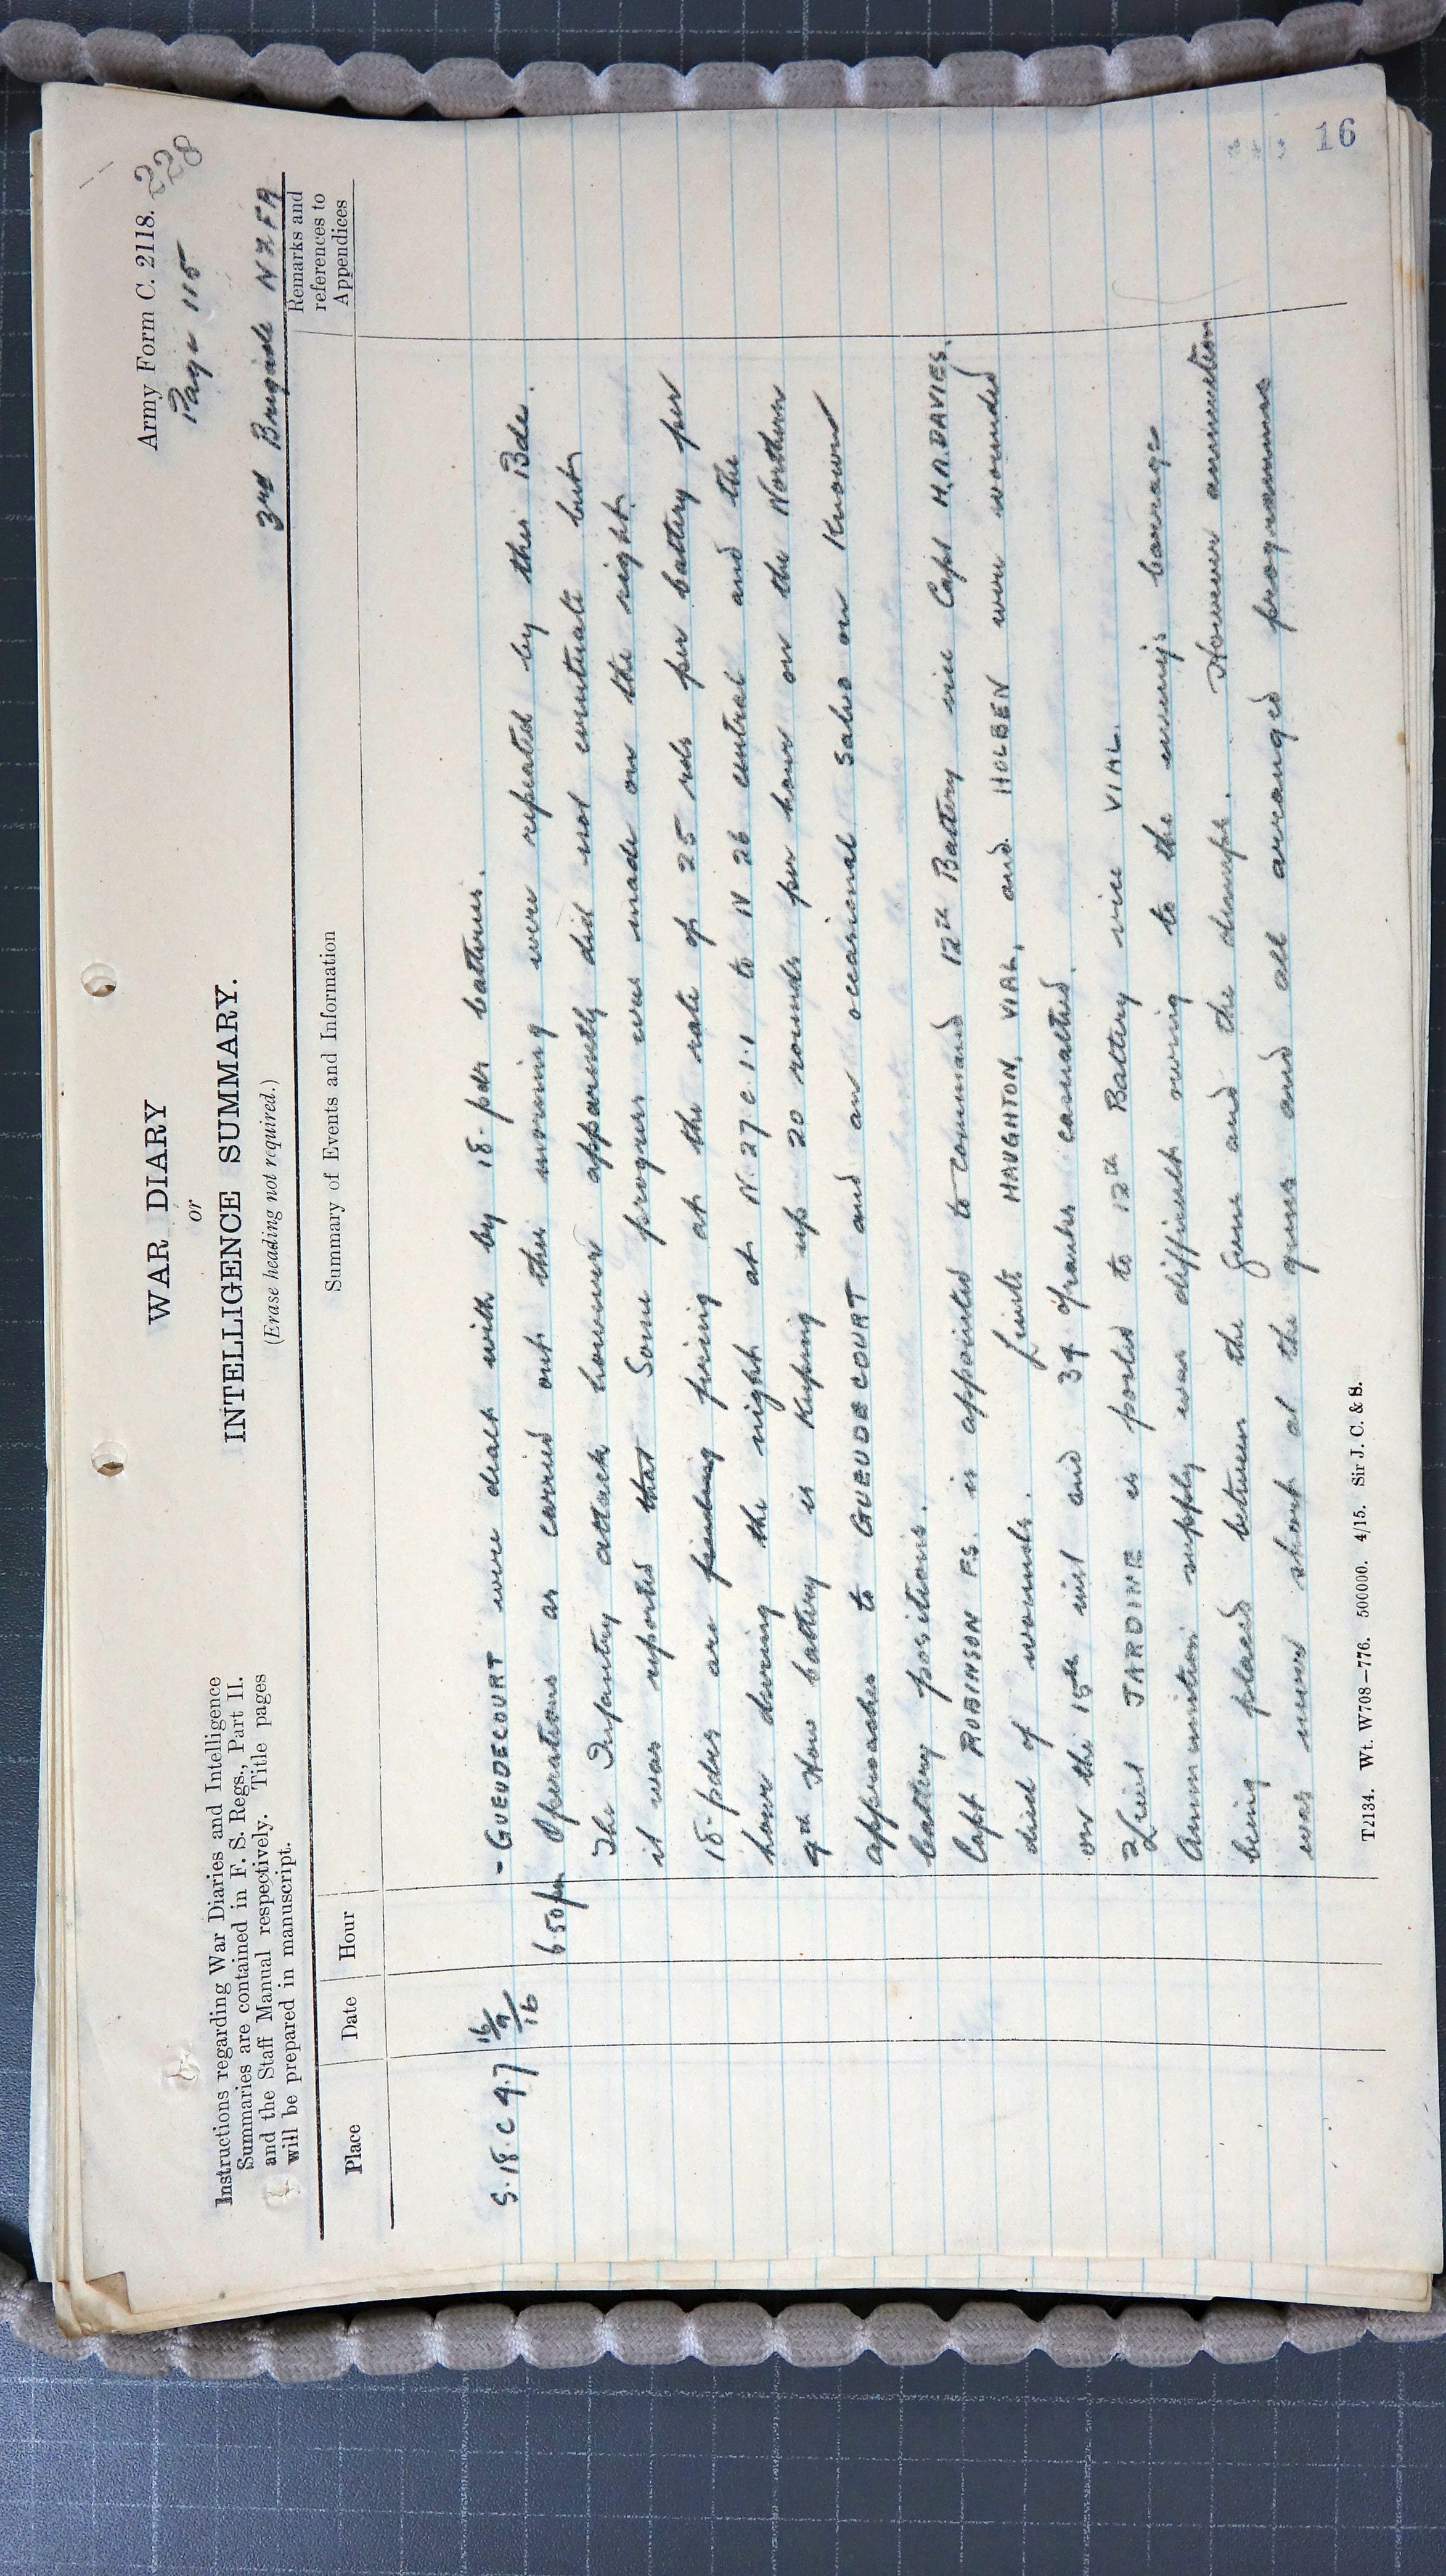 Army Form C. 2118.
228
Page 115
WAR DIARY
or
INTELLIGENCE SUMMARY.
(Erase heading not required.)
3rd Brigade NZFA
Instructions regarding War Diaries and Intelligence
Summaries are contained in F. S. Regs., Part II.
and the Staff Manual respectively. Title pages
will be prepared in manuscript.
Place
Date
Hour
Summary of Events and Information
Remarks and
references to
Appendices
S.18.C 9.7 16/9/16
- GUEDECOURT were dealt with by 18-pdr batteries.
6.50pm Operations as carried out this morning were repeated by this Bde.
The Infantry attack however apparently did not eventuate but
it was reported that some progress was made on the right.
18-pdrs are firing at the rate of 25 rds per battery per
hour during the night at N.27.c.1.1 to N 26 central and the
9th How battery is keeping up 20 rounds per hour on the Northern
approaches to GUEUDECOURT and an occasional salvo on known
battery positions.
Capt ROBINSON F.S. is appointed to command 12th Battery vice Capt H.A. DAVIES,
died of wounds. Lieuts HAUGHTON, VIAL, and HOLBEN were wounded
on the 15th inst and 34 o/ranks casualtied.
2Lieut JARDINE is posted to 12th Battery vice VIAL.
Ammunition supply was difficult owing to the enemy's barrage
being placed between the guns and the dumps. However ammunition
was never short at the guns and all arranged programmes
T2134. Wt. W708—776. 500000. 4/15. Sir J. C. & S.
16